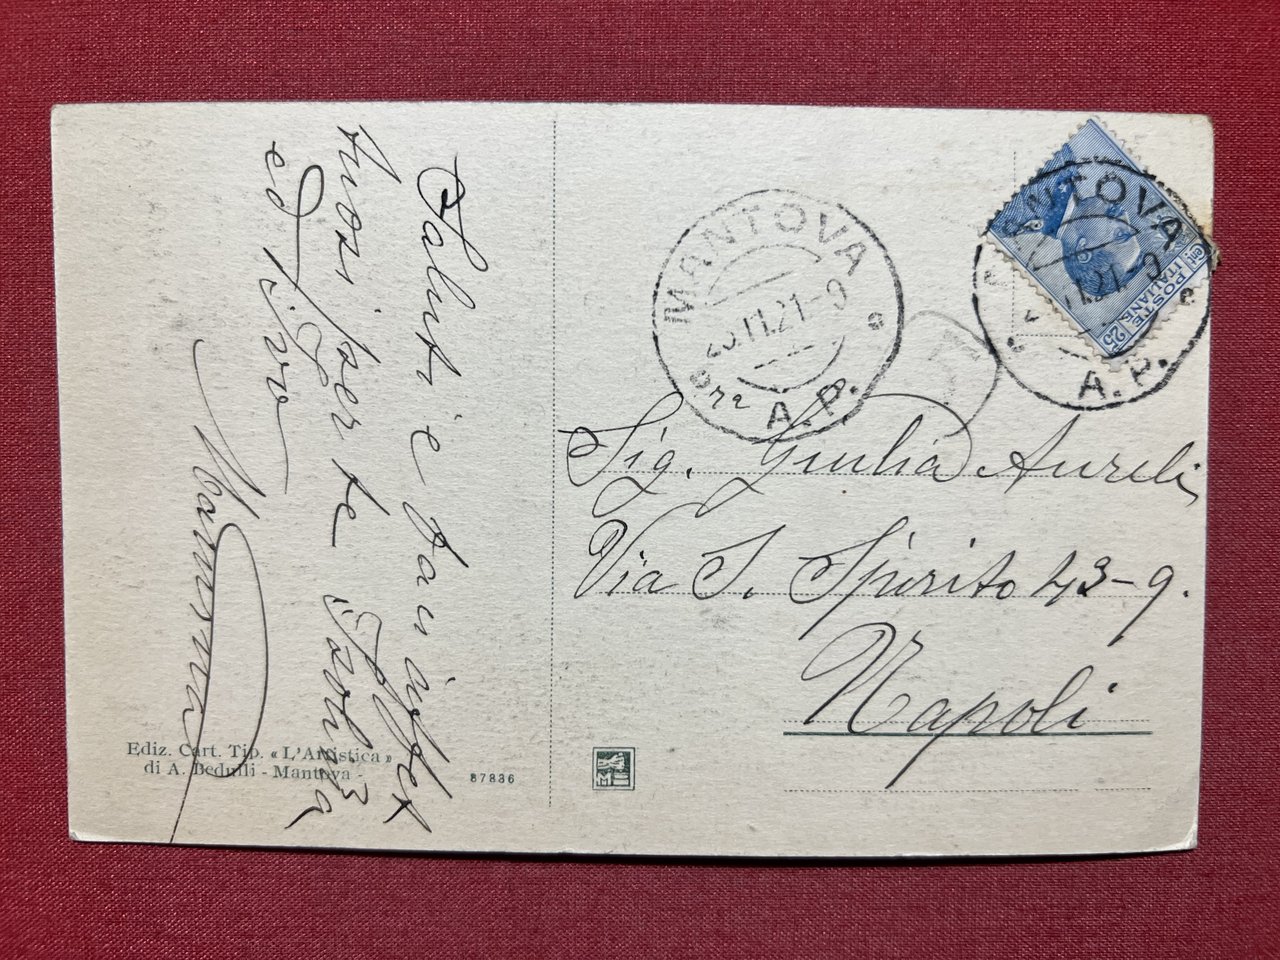 Saluti e baci affet
tuosi per te
ed Ivo
Mamma
Ediz. Cart. Tip. «L'Artistica»
di A. Bedulli - Mantova -
87836
MANTOVA
.21-9
A.P.
MANTOVA
.21-9
A.P.
POSTE
ITALIANE
Cent.
25
Sig. Giulia Aureli
Via S. Spirito 43-9.
Napoli